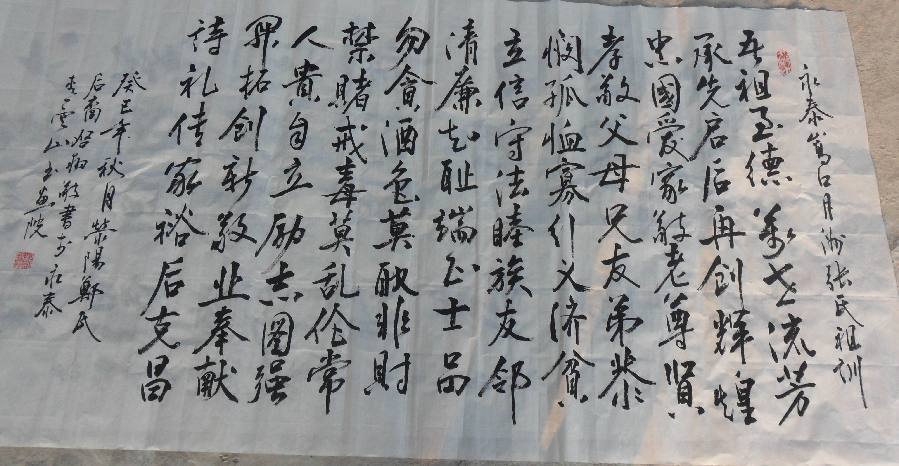 永泰嵩口月洲张氏祖训
吾祖至德万世流芳
承先启后再创辉煌
忠國爱家敬老尊贤
孝敬父母兄友弟恭
悯孤恤寡引义济贫
立信守法睦族友邻
清廉知耻端正士品
勿贪酒色莫取非財
禁賭戒毒莫乱伦常
人貴自立励志图强
开拓创新敬业奉献
詩礼传家裕后克昌
癸巳年秋月荥陽鄭氏
后裔启翔敬書于永泰
青云山书画院